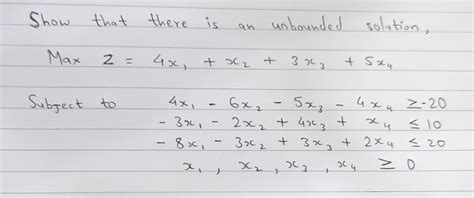 Show that there is an unbounded solution,
Max Z = 4x₁ + x₂ + 3x₃ + 5x₄
Subject to 4x₁ - 6x₂ - 5x₃ - 4x₄ ≥ -20
- 3x₁ - 2x₂ + 4x₃ + x₄ ≤ 10
- 8x₁ - 3x₂ + 3x₃ + 2x₄ ≤ 20
x₁ , x₂ , x₃ , x₄ ≥ 0